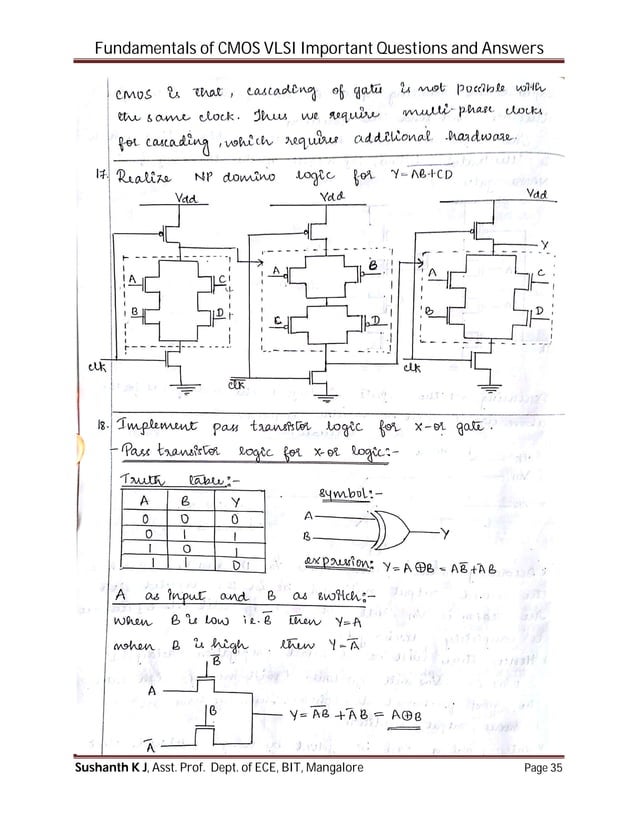 Fundamentals of CMOS VLSI Important Questions and Answers
CMOS is that, cascading of gates is not possible with
the same clock. Thus we require multi-phase clocks
for cascading, which requires additional hardware.
17. Realize NP domino logic for Y=A̅B̅+̅C̅D̅
Vdd Vdd Vdd
Y
A C A B A C
B D C D B D
clk c̅l̅k̅ clk
18. Implement pass transistor logic for x-or gate.
- Pass transistor logic for x-or logic:-
Truth table:-
symbol:-
A B Y
0 0 0
0 1 1
1 0 1
1 1 0
A
B
Y
expression: Y= A⊕B = AB̅ + A̅B
A as input and B as switch:-
when B is low i.e. B̅ then Y=A
when B is high then Y=A̅
B̅
A
B
Y= A̅B̅ + A̅B = A⊕B
A̅
Sushanth K J, Asst. Prof. Dept. of ECE, BIT, Mangalore
Page 35